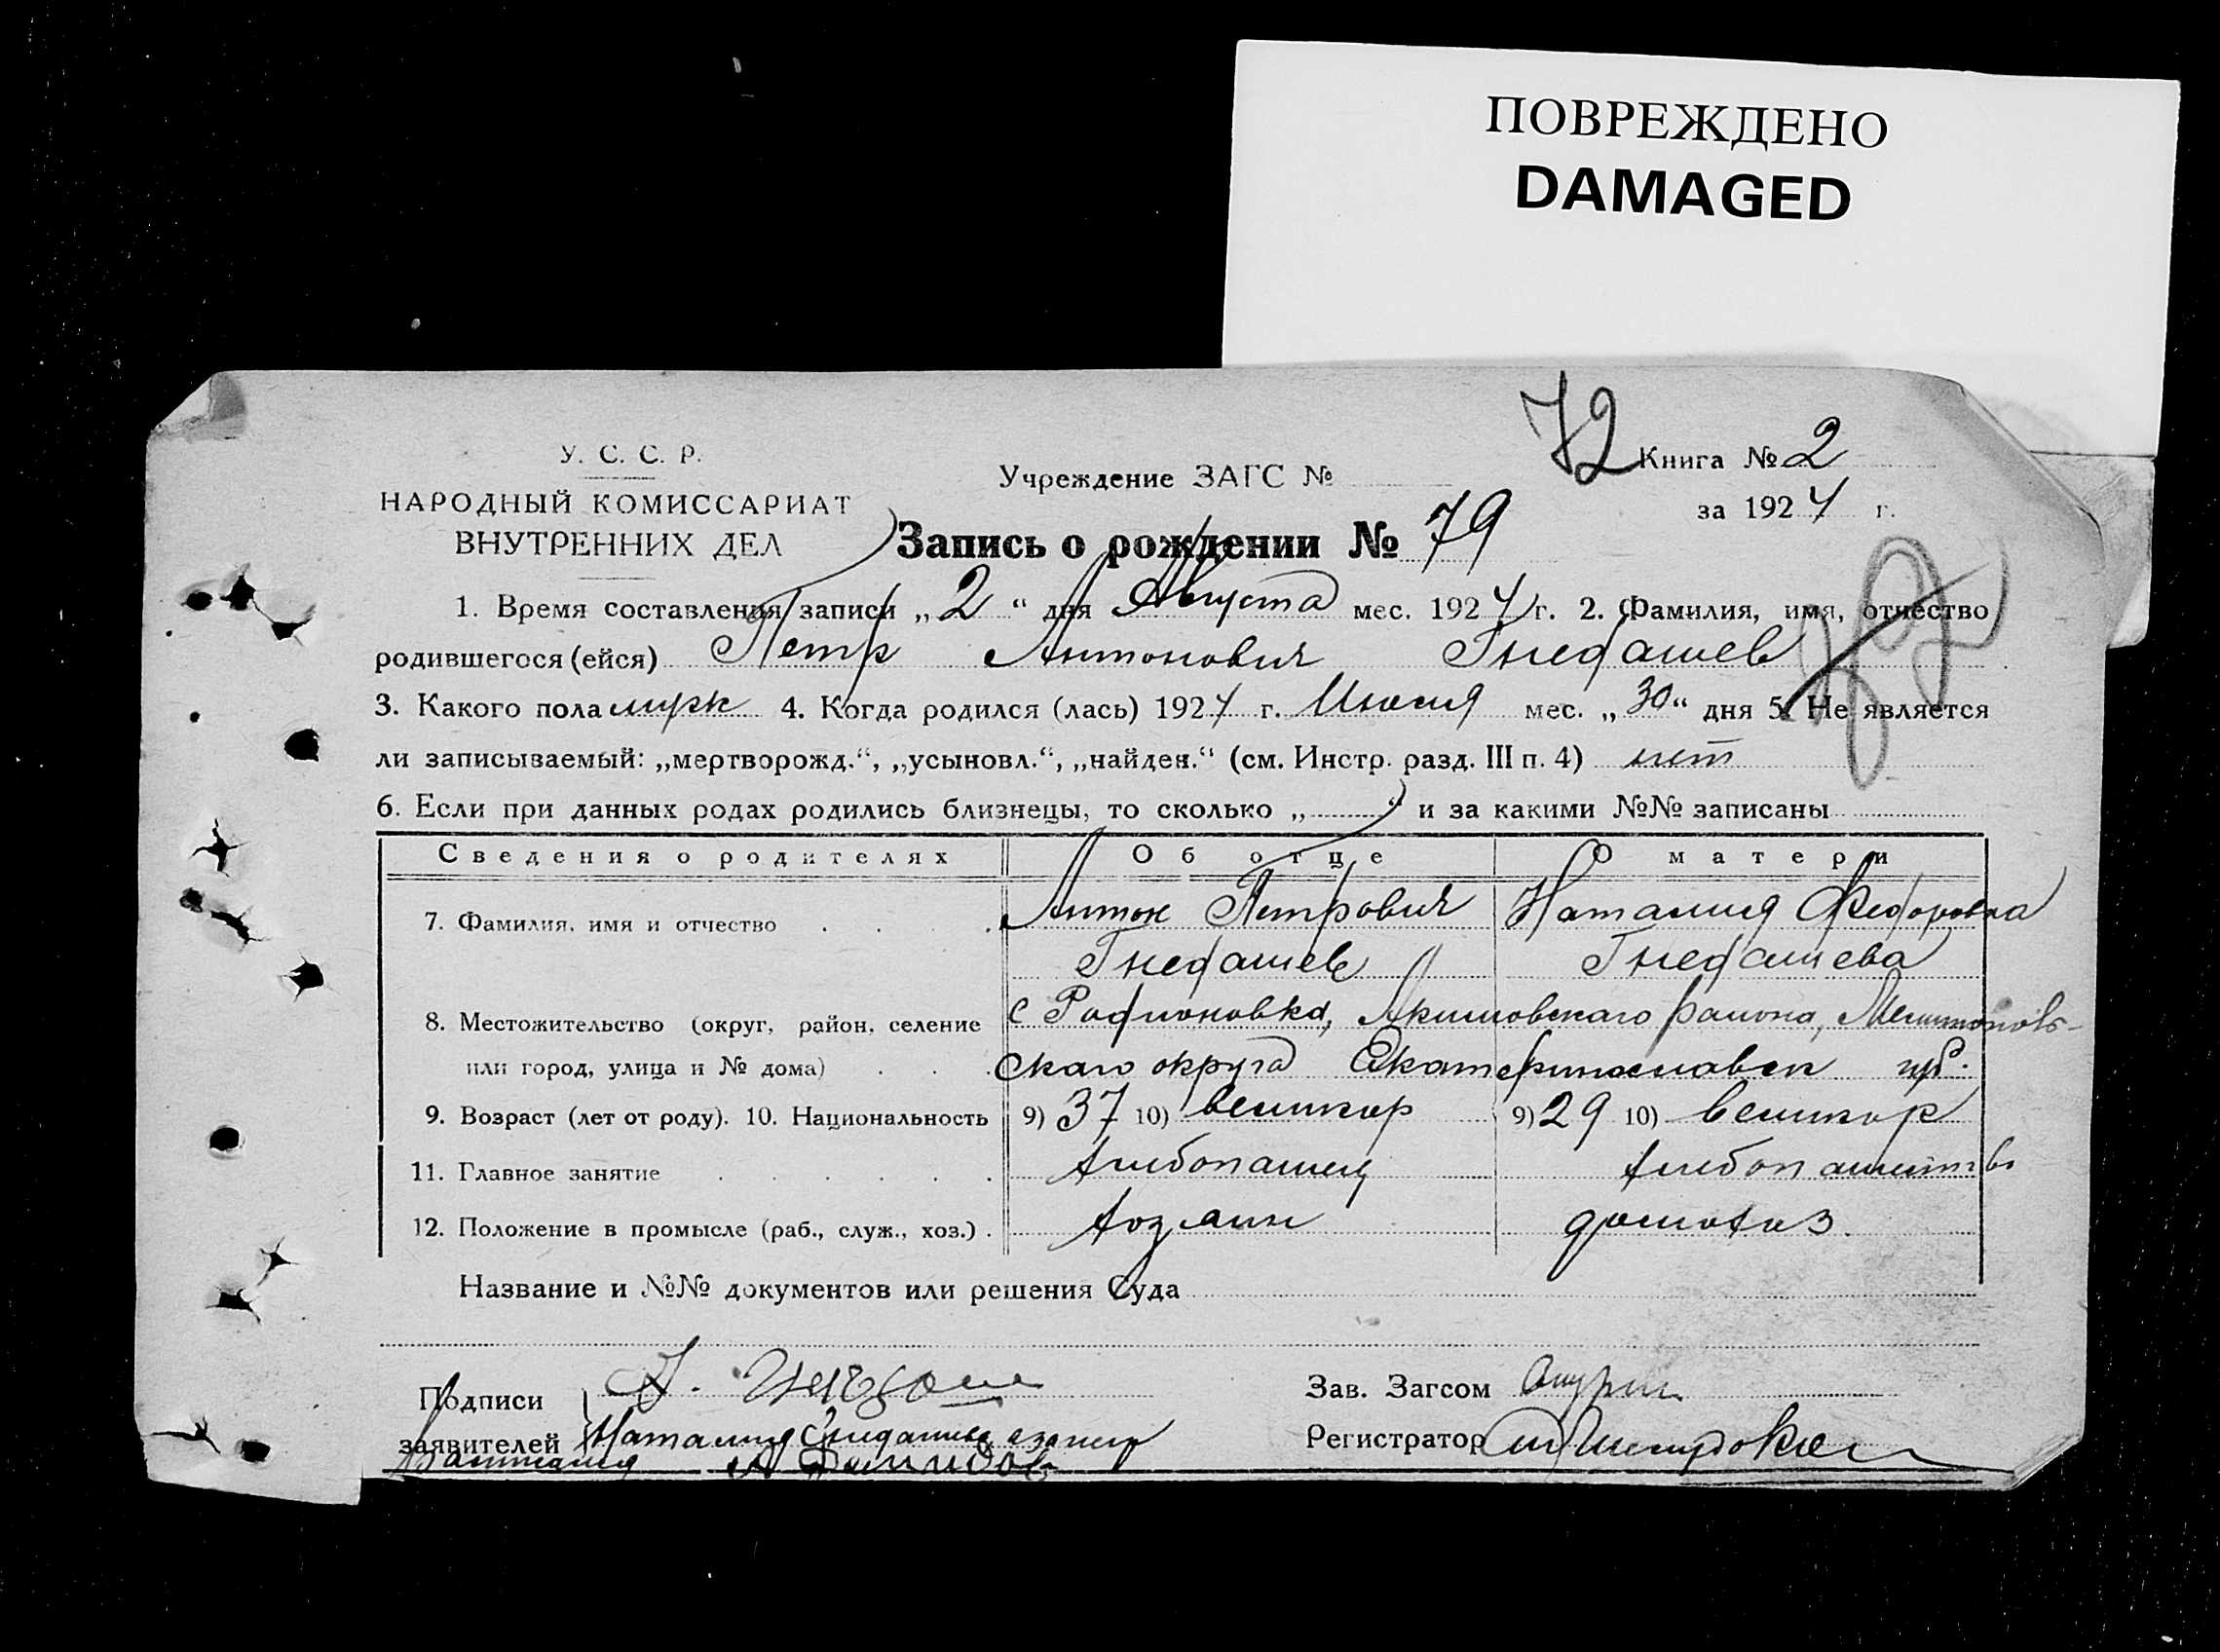 ПОВРЕЖДЕНО
DAMAGED
72
У. С. С. Р.
НАРОДНЫЙ КОМИССАРИАТ
ВНУТРЕННИХ ДЕЛ
Учреждение ЗАГС №
Книга № 2
за 1924 г.
Запись о рождении № 79
1. Время составления записи „2“ дня Августа мес. 1924 г. 2. Фамилия, имя, отчество
родившегося (ейся) Петр Антонович Гнедашев
3. Какого пола мужск 4. Когда родился (лась) 1924 г. Июля мес. „30“ дня 5. Не является
ли записываемый: „мертворожд.“, „усыновл.“, „найден.“ (см. Инстр. разд. III п. 4) нет
6. Если при данных родах родились близнецы, то сколько „ “ и за какими №№ записаны
Сведения о родителях Об отце О матери
7. Фамилия, имя и отчество Антон Петрович Наталия Федоровна
Гнедашев Гнедашева
8. Местожительство (округ, район, селение с Родионовка, Акимовскаго района, Мелитополь-
или город, улица и № дома) скаго округа Екатеринославск губ.
9. Возраст (лет от роду). 10. Национальность 9) 37 10) великор 9) 29 10) великор
11. Главное занятие хлебопашец хлебопашество
12. Положение в промысле (раб., служ., хоз.) хозяин домохоз.
Название и №№ документов или решения Суда
Подписи
заявителей Наталия
Зав. Загсом
Регистратор